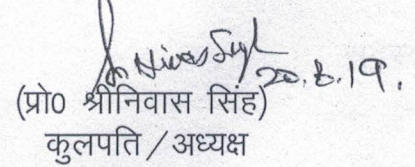 Sri Niwas Singh 20.8.19.
(प्रो0 श्रीनिवास सिंह)
कुलपति / अध्यक्ष